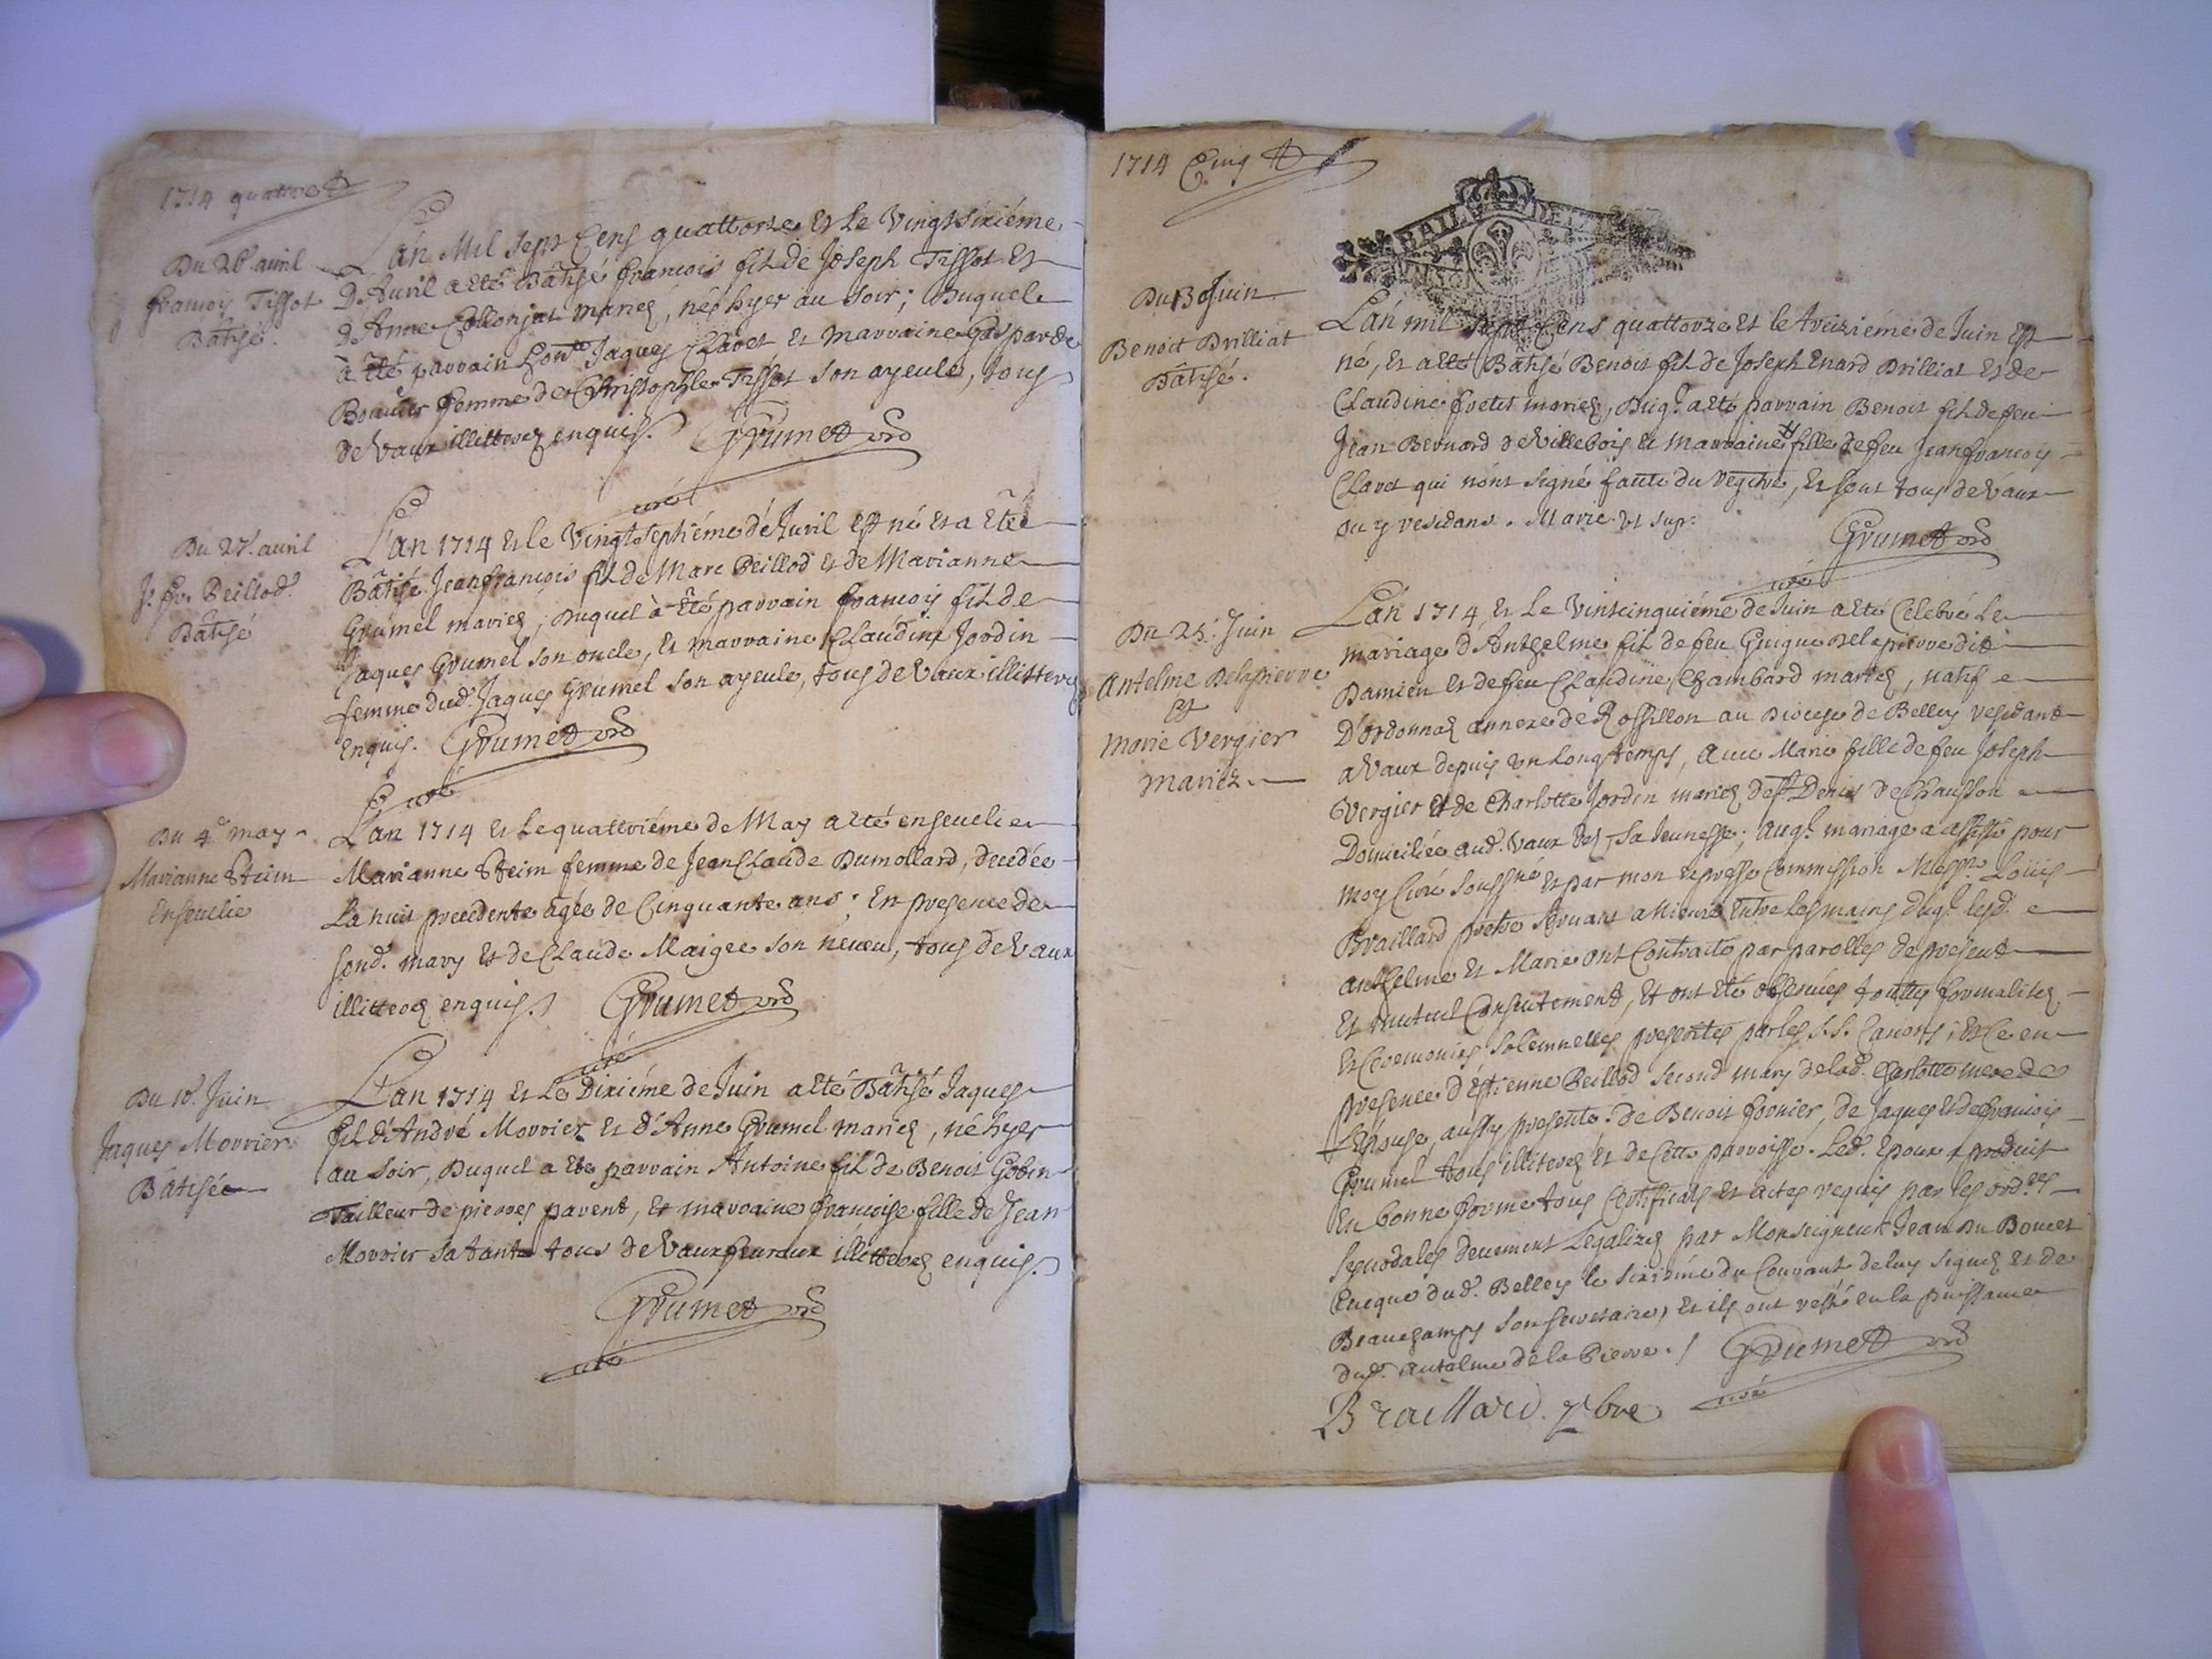 1714 quattre
Du 26 avril
francois Tissot
Batisé.
L'an Mil sept Cens quattorze Et Le Vingtsixiéme
D'Avril a Eté Batisé francois fil de Joseph Tissot Et
D'Anne Collonjat mariez, né hyer au soir ; Duquel
à été parrain Jaques Clavet Et marraine Gasparde
femme de Christophle Tissot son ayeule, tous
de Vaux illitterez enquis. Grumet
curé
Du 27. avril
J. fr. Beillod
Batisé
L'an 1714 Et le Vingt septiéme d'Avril est né Et a Eté
Batisé Jeanfrancois fil de Marc Beillod Et de Marianne
Grumel mariez ; Duquel à été parrain francois fil de
Jaques Grumel son oncle, Et marraine Claudine Jordin
femme dud. Jaques Grumel son ayeule, tous de Vaux illitterez
enquis. Grumet
curé
Du 4e may
Marianne Steim
Enseuelie
L'an 1714 Et Le quattriéme de May a eté enseuelie
Marianne Steim femme de Jean Claude Dumollard, decedée
La nuit precedente agée de Cinquante ans ; En presence de
sond. mary Et de Claude Maigre son neueu, tous de Vaux
illitterez enquis. Grumet
curé
Du 10. Juin
Jaques Morrier
Batisé
L'an 1714 Et Le Dixiéme de Juin a Eté Batisé Jaques
fil d'André Morrier Et d'Anne Grumel mariez, né hyer
au soir, Duquel a Eté parrain Antoine fil de Benoit Gobin
Tailleur de pierres parent, Et marraine francoise fille de Jean
Morrier sa tante tous de Vaux illitterez enquis.
Grumet
curé
1714 Cinq
Du 13 Juin
Benoit Drilliat
Batisé.
BAIL DE
L'an mil sept Cens quattorze Et le treiziéme de Juin Est
né, Et a Eté Batisé Benoit fil de Joseph Enard Drilliat Et de
Claudine mariez, Duq.l a eté parrain Benoit fil de feu
Jean Bernard de Villebois Et marraine fille de feu Jeanfrancois
Clavet qui n'ont signé faute du Requis, Et sont tous de Vaux
ou y residans. Marie Vt sup.
Grumet
curé
Du 25. Juin
Antelme Delapierre
Et
Marie Vergier
Mariez
L'an 1714 Et Le Vintcinquiéme de Juin a Eté Celebré Le
mariage d'Anthelme fil de feu Guigue Delapierre dit
Damien Et de feu Claudine Chambard mariez, natif
D'ordonnaz annexe de Rossillon au Diocese de Belley residant
a Vaux depuis un Longtemps, Auec Marie fille de feu Joseph
Vergier Et de Charlotte Jordin mariez de St Denis de Chausson
Domiciliée aud. Vaux dez sa Jeunesse ; auq.l mariage a assisté pour
moy Curé Soussné Et par mon expresse Commission Messr. Louis
Braillard prétre seruant a Entre Les mains duq.l lesd.
anthelme Et Marie ont Contracté par parolles de present
Et mutuel Consentement, Et ont été obseruées touttes formalitez
Et Ceremonies Solemnelles prescrites par les S.S. Canons ; Et Ce en
presence d'Estienne Beillod second mary de lad. Charlotte mere de
L'Epouse, aussy presente. De Benoit fornier, de Jaques Et de francois
Grumel tous illiterez Et de Cette parroisse. Led. Epoux a produit
En bonne forme tous Certificats Et actes requis par les ord.ces
Synodales deuement Legalizez par Monseigneur Jean Du Doucet
Eueque dud. Belley le seziéme du Courant de luy signez Et de
Beauchamps son secretaire, Et ils ont resté en la puissance
dud. Antelme de la Pierre. Grumet
curé
Braillard. pbre